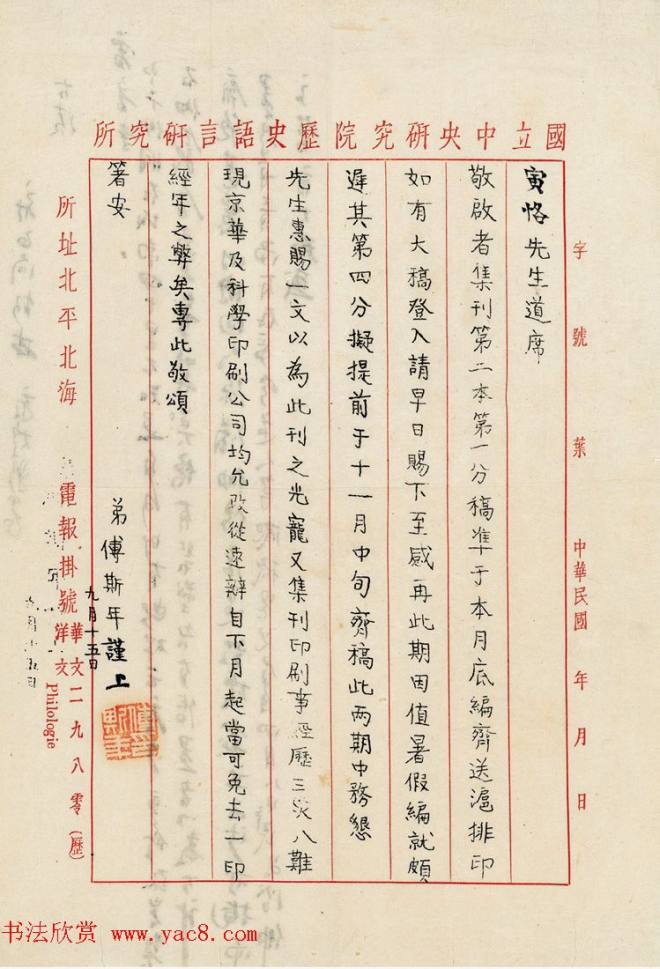 國立中央研究院歷史語言研究所
字號 葉 中華民國 年 月 日
寅恪先生道席
敬啟者集刊第二本第一分稿準于本月底編齊送滬排印
如有大稿登入請早日賜下至感再此期因值暑假編就頗
遲其第四分擬提前于十一月中旬齊稿此兩期中務懇
先生惠賜一文以為此刊之光寵又集刊印刷事經歷三災八難
現京華及科學印刷公司均允改從速辦自下月起當可免去一印
經年之弊矣專此敬頌
箸安
弟傅斯年謹上
九月十五日
所址北平北海
電報掛號 華文二九八零(歷)
洋文Philologie
书法欣赏 www.yac8.com